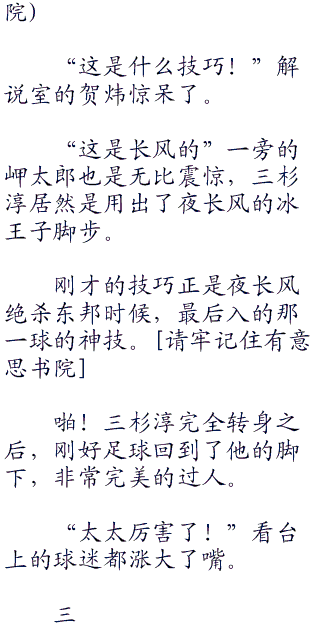 院）
“这是什么技巧！”解
说室的贺炜惊呆了。
“这是长风的”一旁的
岬太郎也是无比震惊，三杉
淳居然是用出了夜长风的冰
王子脚步。
刚才的技巧正是夜长风
绝杀东邦时候，最后入的那
一球的神技。[请牢记住有意
思书院]
啪！三杉淳完全转身之
后，刚好足球回到了他的脚
下，非常完美的过人。
“太太厉害了！”看台
上的球迷都涨大了嘴。
三